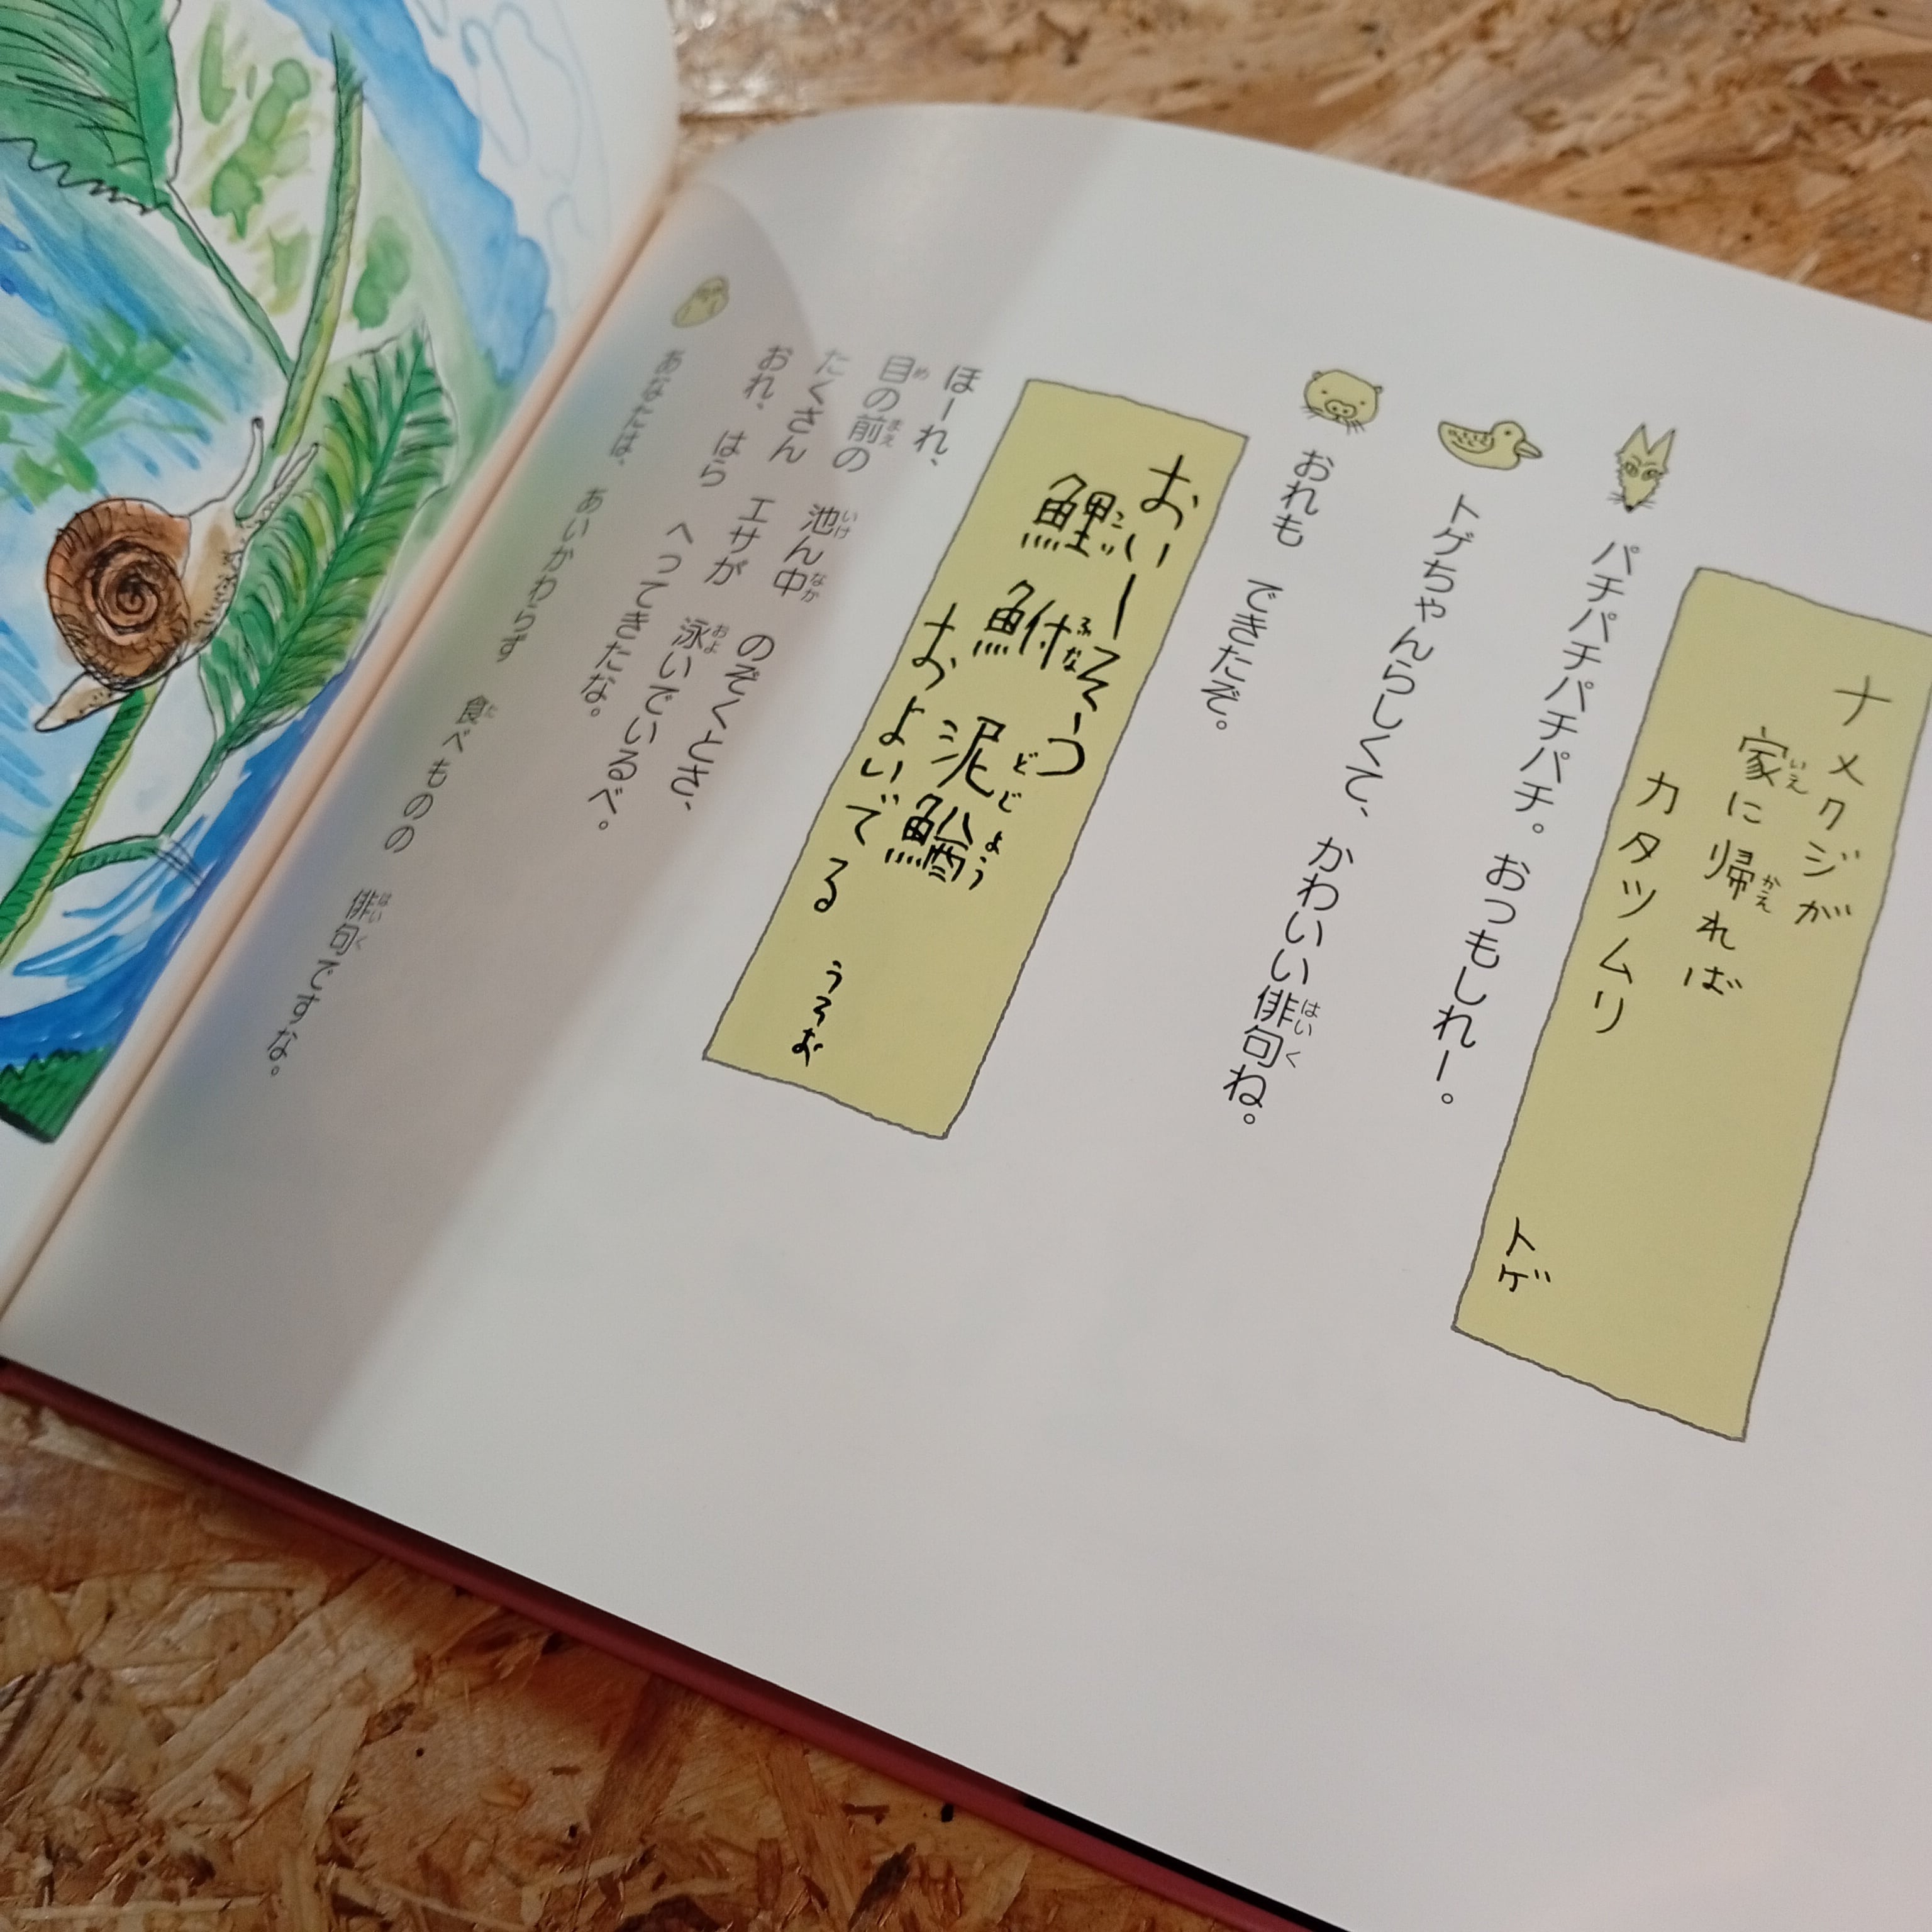 ナメクジが
家に帰れば
カタツムリ
トゲ
パチパチパチパチ。おっもしれー。
トゲちゃんらしくて、かわいい俳句ね。
おれも できたぞ。
おいーそーつ
鯉 鮒 泥鰌
およいでる
うろお
ほーれ、池ん中 のぞくとさ、
目の前の エサが 泳いでいるべ。
たくさん
おれ、はら へってきたな。
あなたは、あいかわらず 食べものの 俳句ですな。